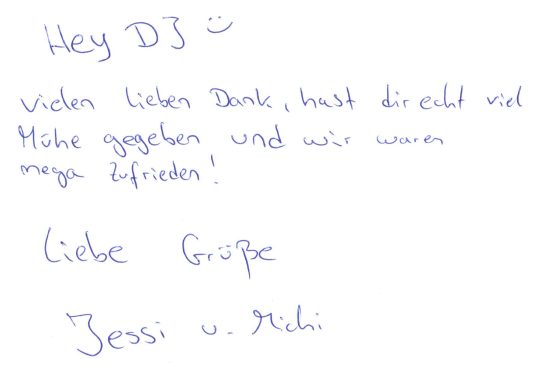 Hey DJ ☺
vielen lieben Dank, hast dir echt viel
Mühe gegeben und wir waren
mega zufrieden!
Liebe Grüße
Jessi u. Michi